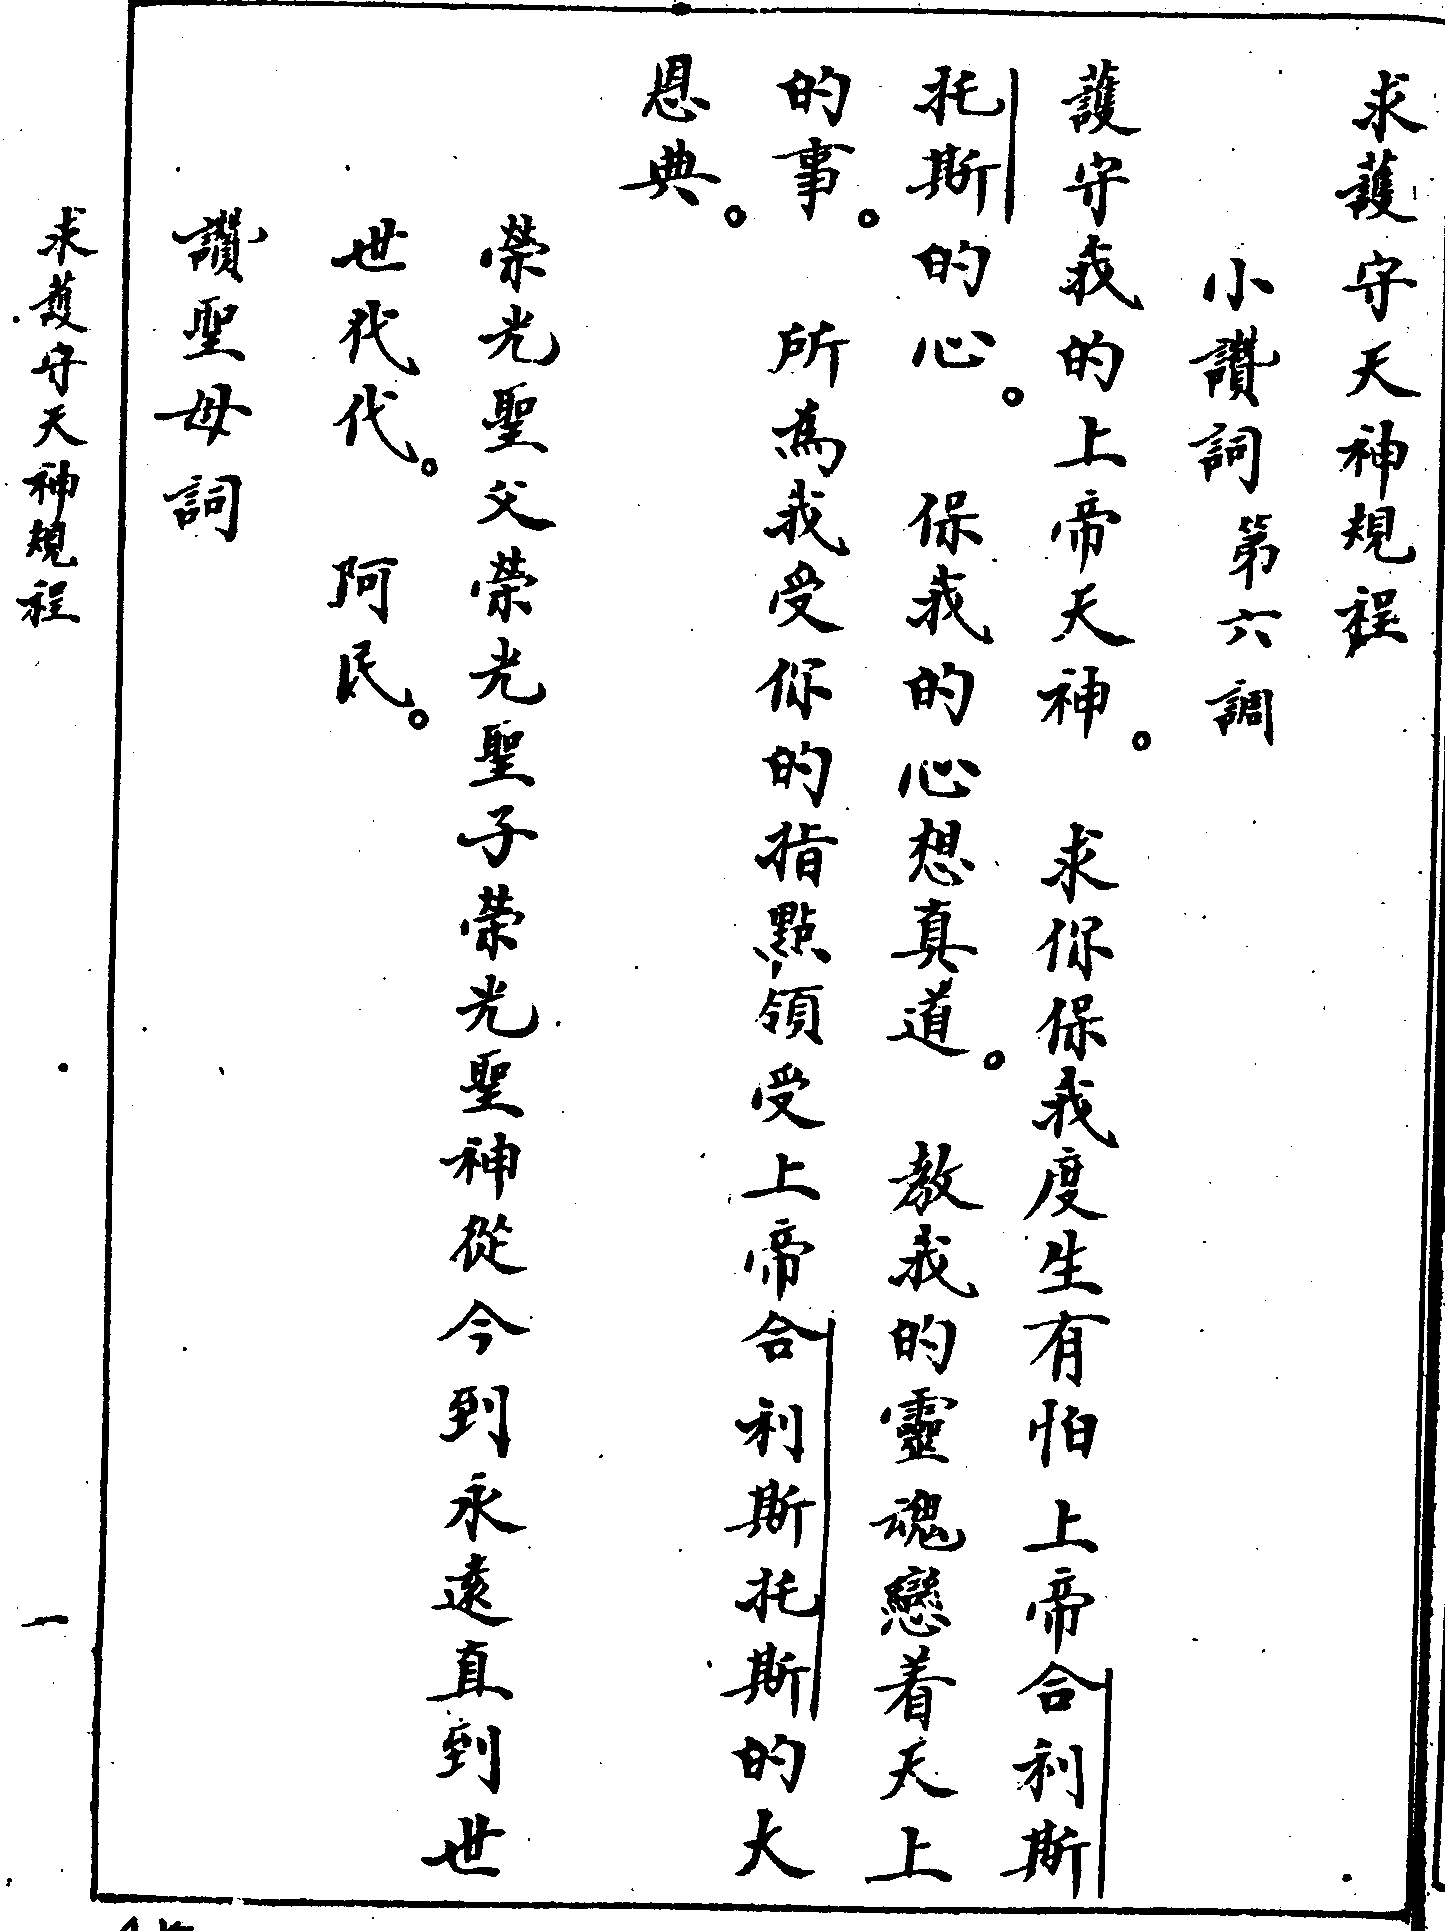 求護守天神規程
小讚詞第六調
護守我的上帝天神。求你保我度生有怕上帝合利斯
托斯的心。保我的心想真道。教我的靈魂戀着天上
的事。所為我受你的指點領受上帝合利斯托斯的大
恩典。
榮光聖父榮光聖子榮光聖神從今到永遠直到世
世代代。阿民。
讚聖母詞
求護守天神規程
一